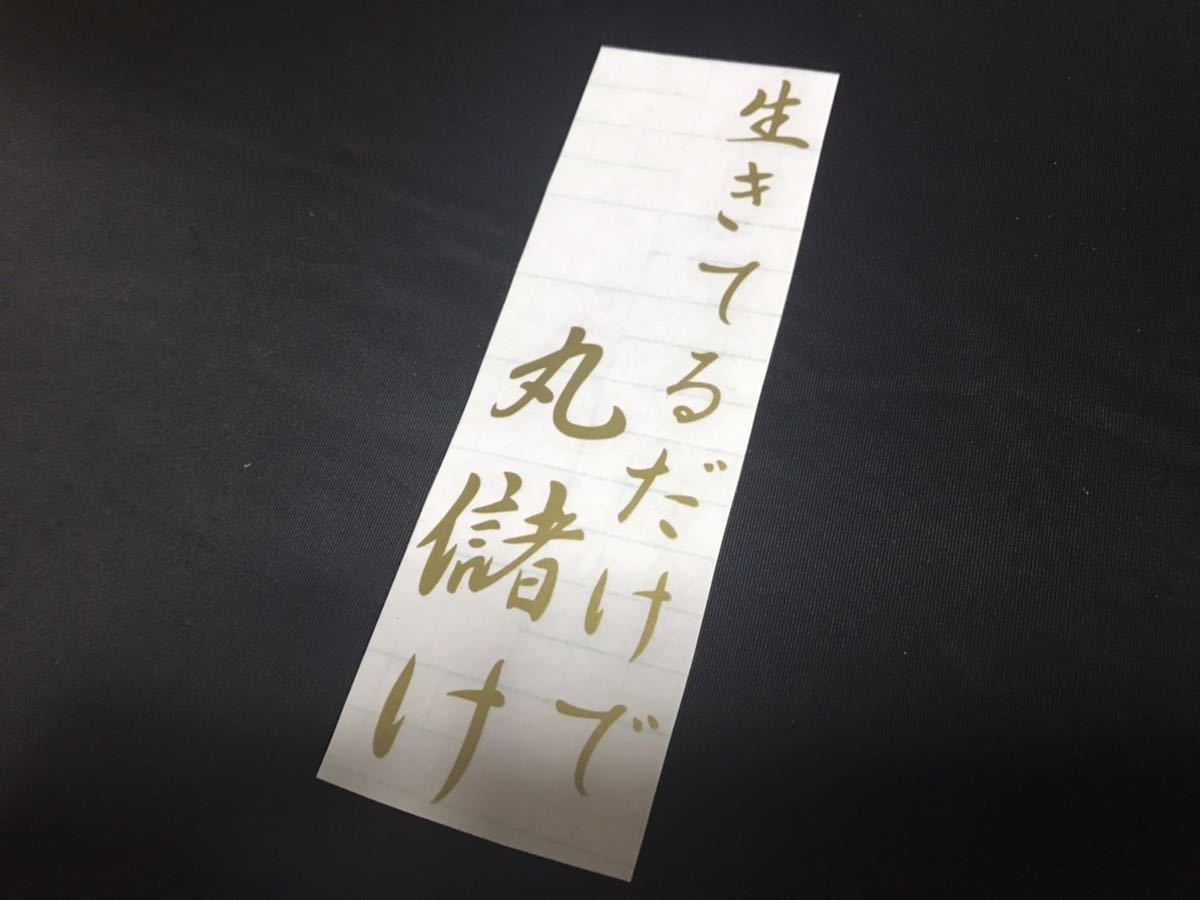 生きてるだけで
丸儲け